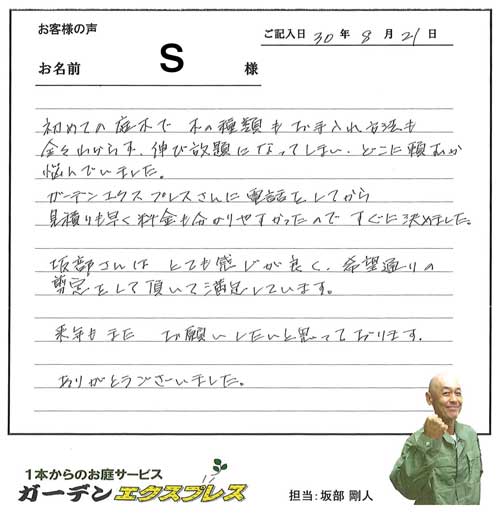 お客様の声
ご記入日 30 年 8 月 21 日
お名前 S 様
初めての庭木で 木の種類も お手入れ方法も
全々わからず、伸び放題になってしまい、どこに頼むか
悩んでいました。
ガーデンエクスプレスさんに電話をしてから
見積りも早く料金も分かりやすかったので すぐに決めました。
坂部さんは とても感じが良く、希望通りの
剪定をして頂いて満足しています。
来年もまた お願いしたいと思っております。
ありがとうございました。
1本からのお庭サービス
ガーデンエクスプレス
担当:坂部 剛人